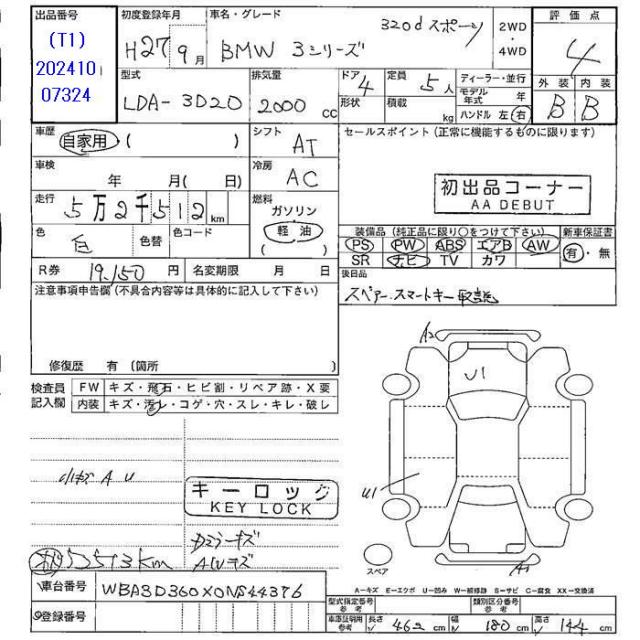 出品番号
(T1)
202410
07324
初度登録年月
H27 9月
車名・グレード
BMW 3シリーズ
320d スポーツ
2WD
・
4WD
評価点
4
型式
LDA-3D20
排気量
2000 cc
ドア 4
形状
定員 5人
積載 kg
ディーラー・並行
モデル年式 年
ハンドル 左 右
外装 内装
B B
車歴
自家用 ( )
シフト
AT
セールスポイント (正常に機能するものに限ります)
車検
年 月( 日)
冷房
AC
初出品コーナー
AA DEBUT
走行
5万2千512 km
燃料
ガソリン
軽油
( )
色
白
色替
色コード
装備品 (純正品に限り○をつけて下さい)
PS PW ABS エアB AW
SR ナビ TV カワ
新車保証書
有・無
R券 19,150 円
名変期限 月 日
後日品
スペアースマートキー 取説
注意事項申告欄 (不具合内容等は具体的に記入して下さい)
修復歴 有 (箇所 )
検査員
記入欄
FW キズ・飛石・ヒビ割・リペア跡・X要
内装 キズ・汚レ・コゲ・穴・スレ・キレ・破レ
A2
U1
U1
A1
スペア
小キズ A U
キーロック
KEY LOCK
AWキズ
52513km
A－キズ E－エクボ U－凹み W－補修跡 B－サビ C－腐食 XX－交換済
車台番号
WBA3D360X0NS44376
登録番号
型式指定番号
参考
類別区分番号
参考
車庫証明用
参考
長さ 462 cm
幅 180 cm
高さ 144 cm